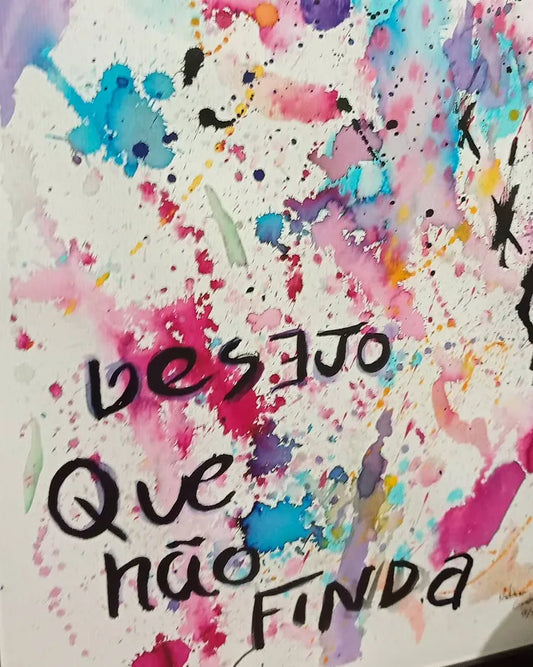 DesEJO
Que
não
FINDa